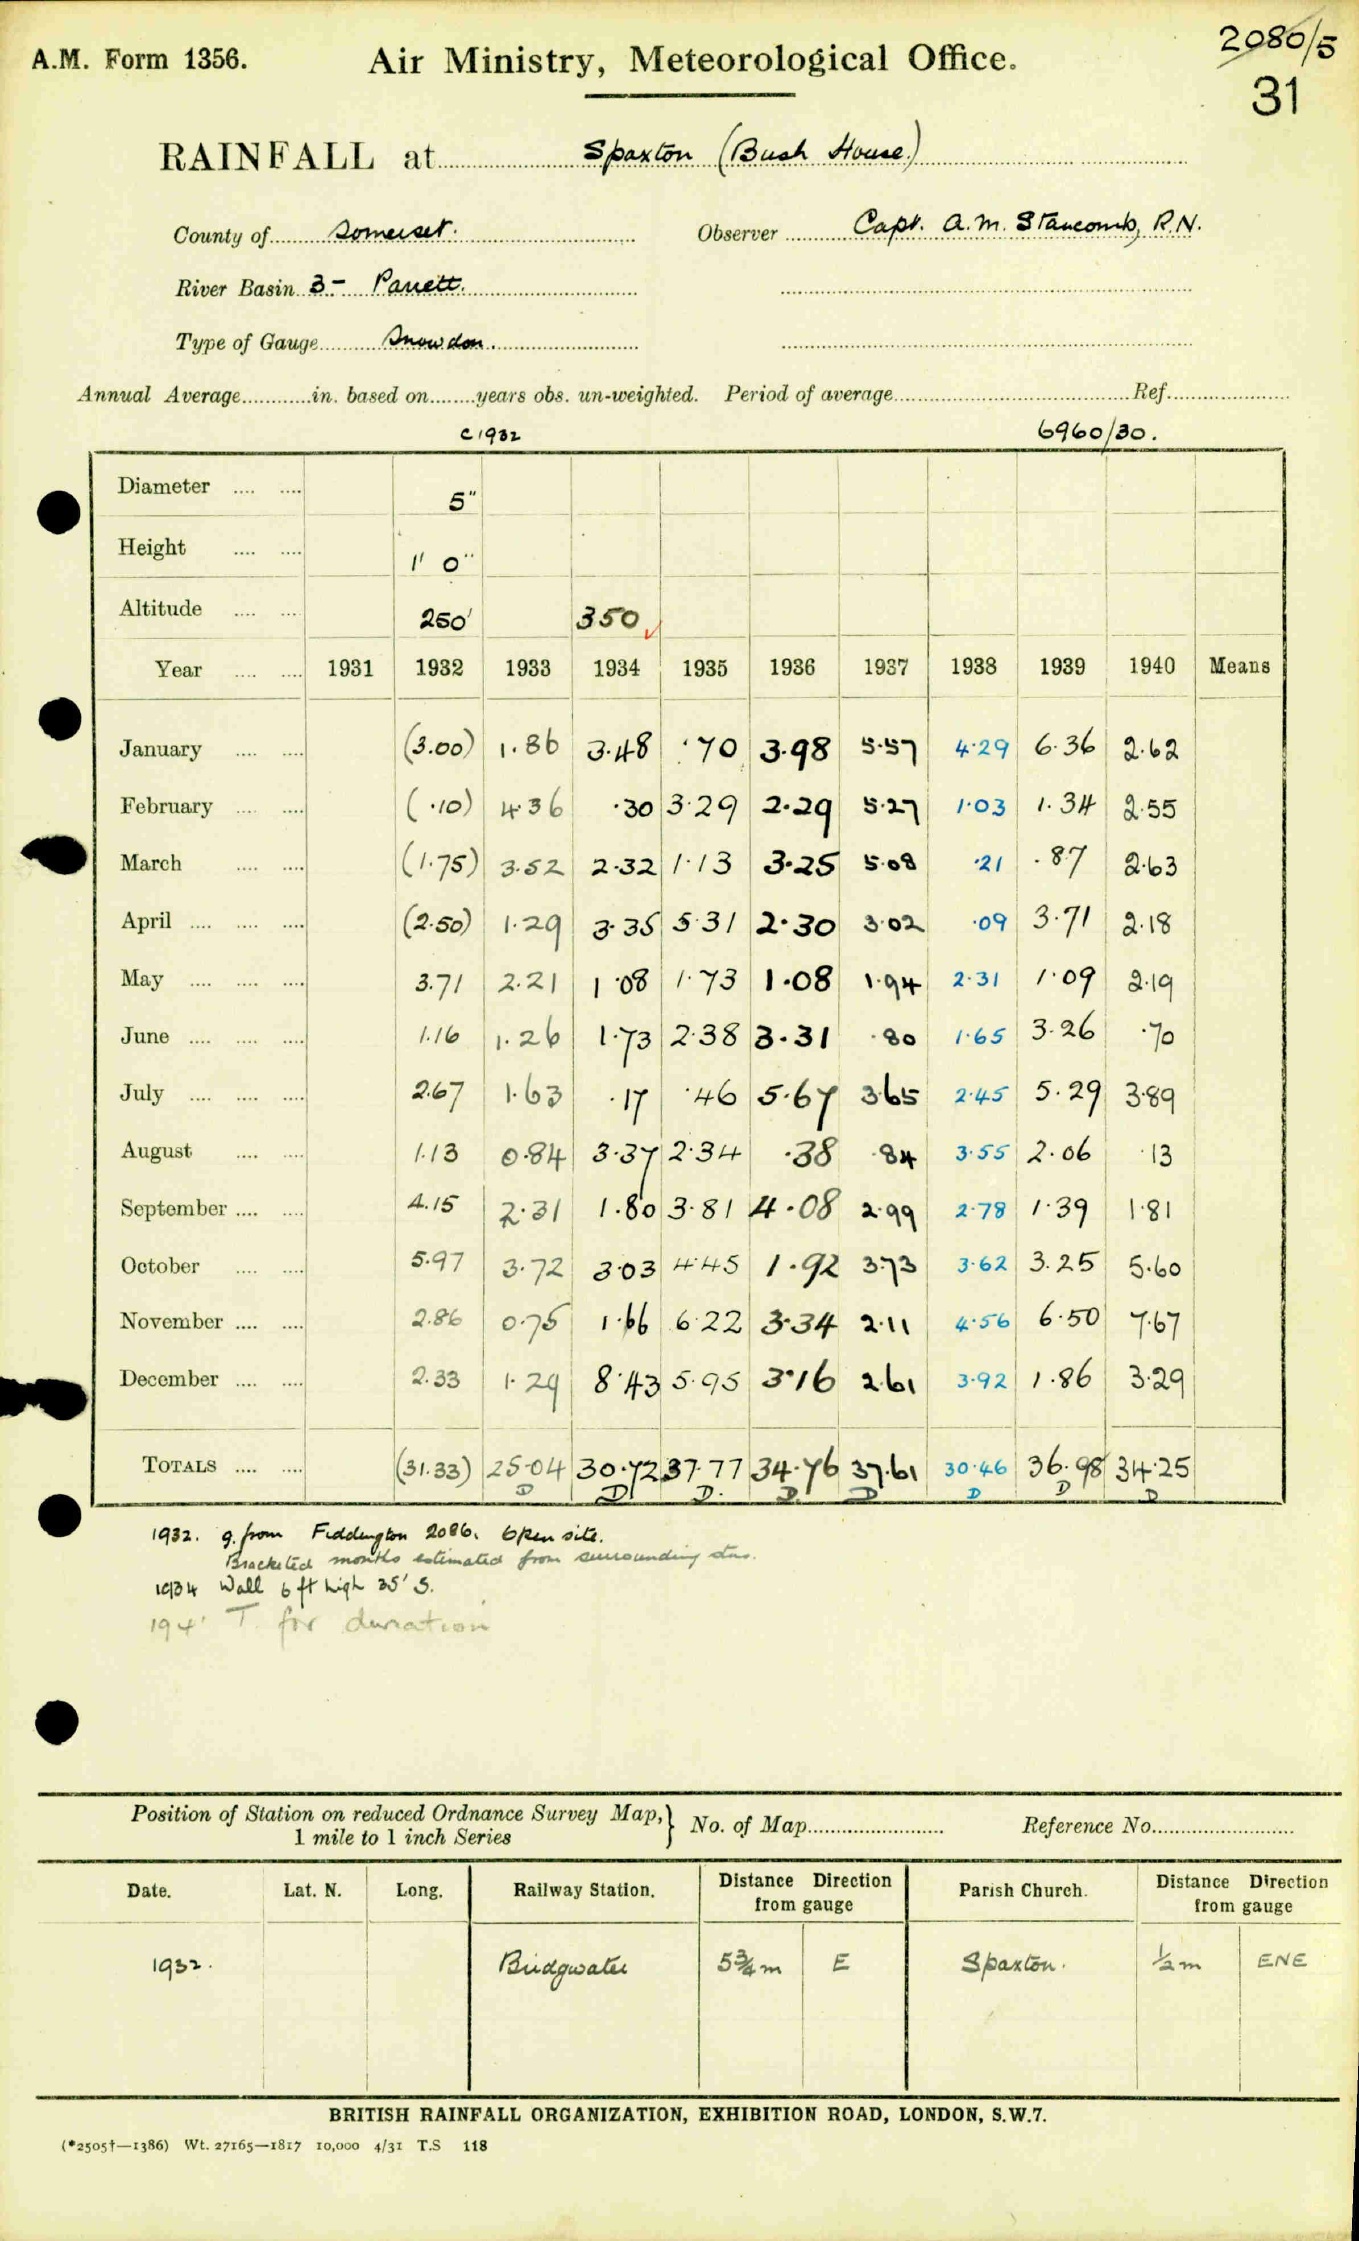 A.M. Form 1356. Air Ministry, Meteorological Office. 2080/5
31
RAINFALL at Spaxton (Bush House.)
County of Somerset. Observer Capt. A.M. Stancomb, R.N.
River Basin 3 - Parrett.
Type of Gauge Snowdon.
Annual Average in. based on years obs. un-weighted. Period of average Ref.
c1932 6960/30.
Diameter 5"
Height 1' 0"
Altitude 250' 350 ✓
Year 1931 1932 1933 1934 1935 1936 1937 1938 1939 1940 Means
January (3.00) 1.86 3.48 .70 3.98 5.57 4.29 6.36 2.62
February (.10) 4.36 .30 3.29 2.29 5.27 1.03 1.34 2.55
March (1.75) 3.52 2.32 1.13 3.25 5.08 .21 .87 2.63
April (2.50) 1.29 3.35 5.31 2.30 3.02 .09 3.71 2.18
May 3.71 2.21 1.08 1.73 1.08 1.94 2.31 1.09 2.19
June 1.16 1.26 1.73 2.38 3.31 .80 1.65 3.26 .70
July 2.67 1.63 .17 .46 5.67 3.65 2.45 5.29 3.89
August 1.13 0.84 3.37 2.34 .38 .84 3.55 2.06 .13
September 4.15 2.31 1.80 3.81 4.08 2.99 2.78 1.39 1.81
October 5.97 3.72 3.03 4.45 1.92 3.73 3.62 3.25 5.60
November 2.86 0.75 1.66 6.22 3.34 2.11 4.56 6.50 7.67
December 2.33 1.29 8.43 5.95 3.16 2.61 3.92 1.86 3.29
TOTALS (31.33) 25.04 30.72 37.77 34.76 37.61 30.46 36.98 34.25
D D D. D. D D D D
1932. g. from Fiddington 2086. Open site.
Bracketed months estimated from surrounding stns.
1934 Wall 6 ft high 35' S.
T. for duration
Position of Station on reduced Ordnance Survey Map, } No. of Map Reference No.
1 mile to 1 inch Series
Date. Lat. N. Long. Railway Station. Distance Direction from gauge Parish Church. Distance Direction from gauge
1932. Bridgwater 5¾ m E Spaxton. ½ m ENE
BRITISH RAINFALL ORGANIZATION, EXHIBITION ROAD, LONDON, S.W.7.
(*2505†—1386) Wt. 27165—1817 10,000 4/31 T.S 118